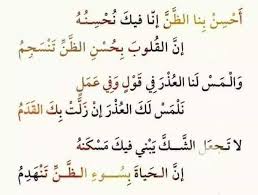 أَحْسِنْ بِنا الظَّنَّ إنّا فيكَ نُحْسِنُهُ
إنَّ القُلوبَ بِحُسْنِ الظَّنِّ تَنْسَجِمُ
وَالْمَسْ لَنا العُذْرَ في قَولٍ وَفي عَمَلٍ
نَلْمَسْ لَكَ العُذْرَ إنْ زَلَّتْ بِكَ القَدَمُ
لا تَجعَلِ الشَّكَّ يَبْني فيكَ مَسْكَنَهُ
إنَّ الحَياةَ بِسُوءِ الظَّنِّ تَنْهَدِمُ